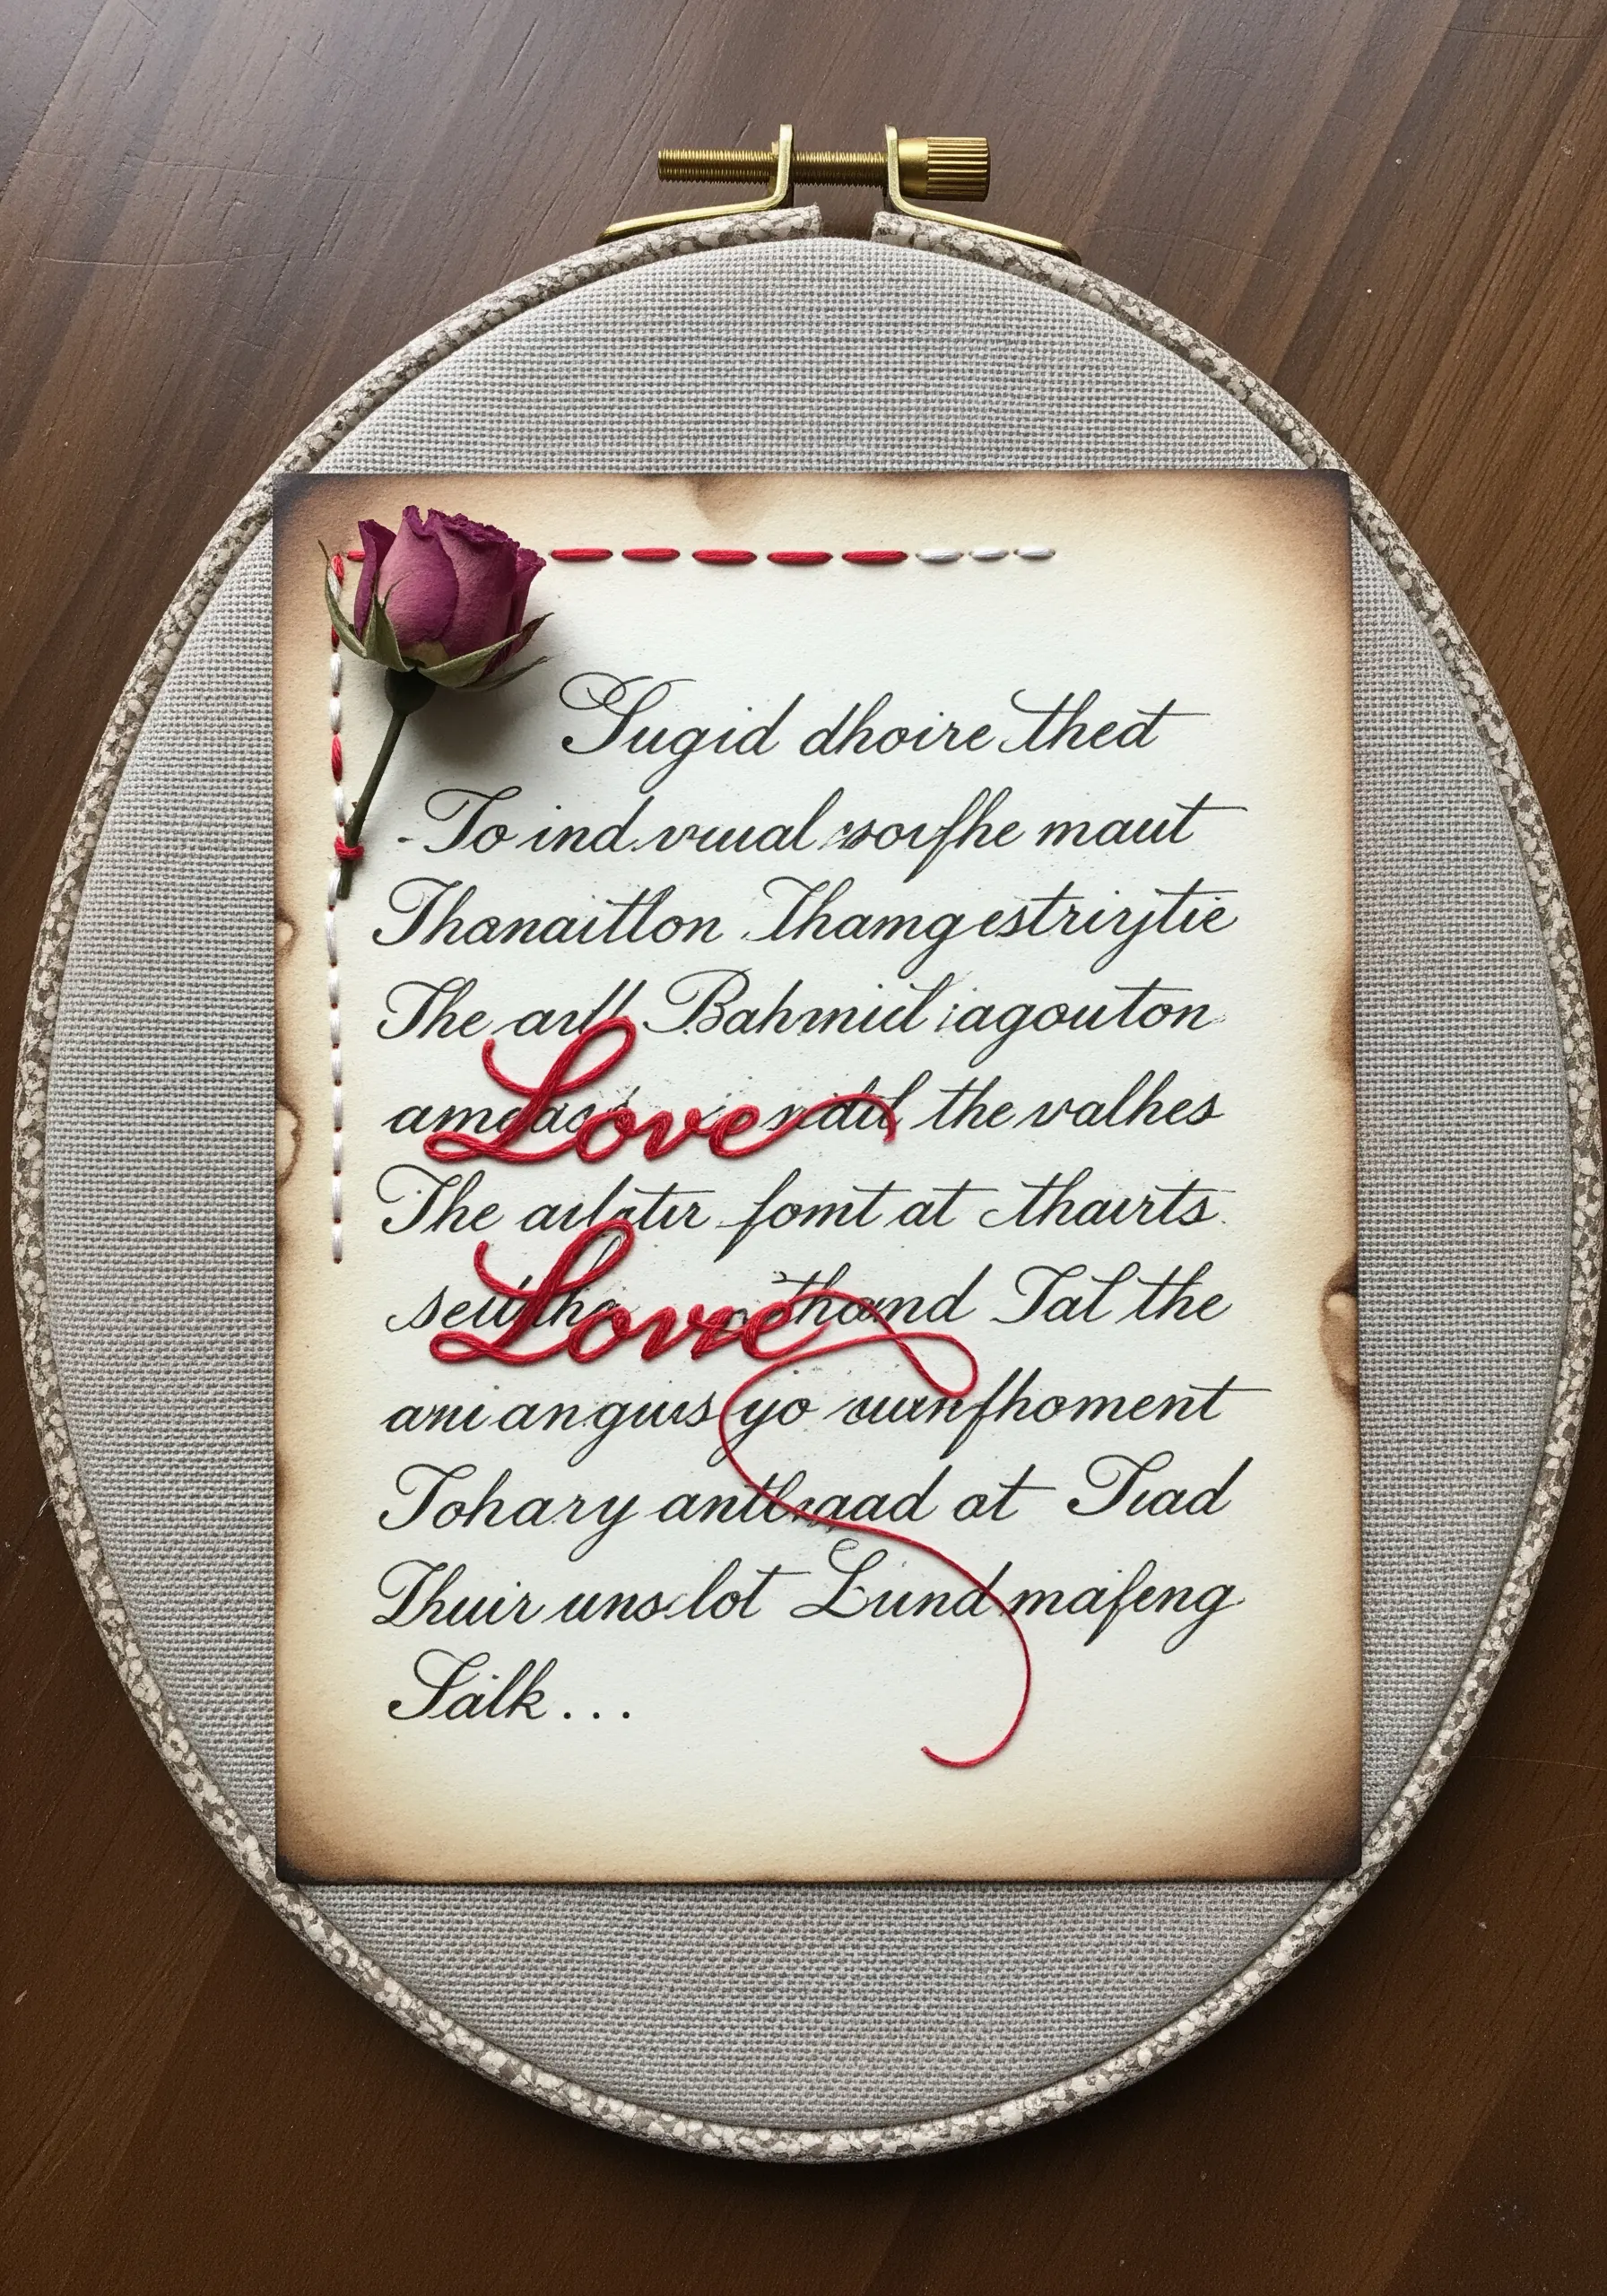 Sugid dhoire thed
-To ind vuual worfhe maut
Thanaitlon Thamg estrirjtie
The adl Bahmid iagouton
Love the valhes
The ailatir fomt at thairts.
Love thand Tal the
ani an guis yo fhoment
Tohary antlraad at Tiad
Thuir uns lot Lund mafeng
Salk...